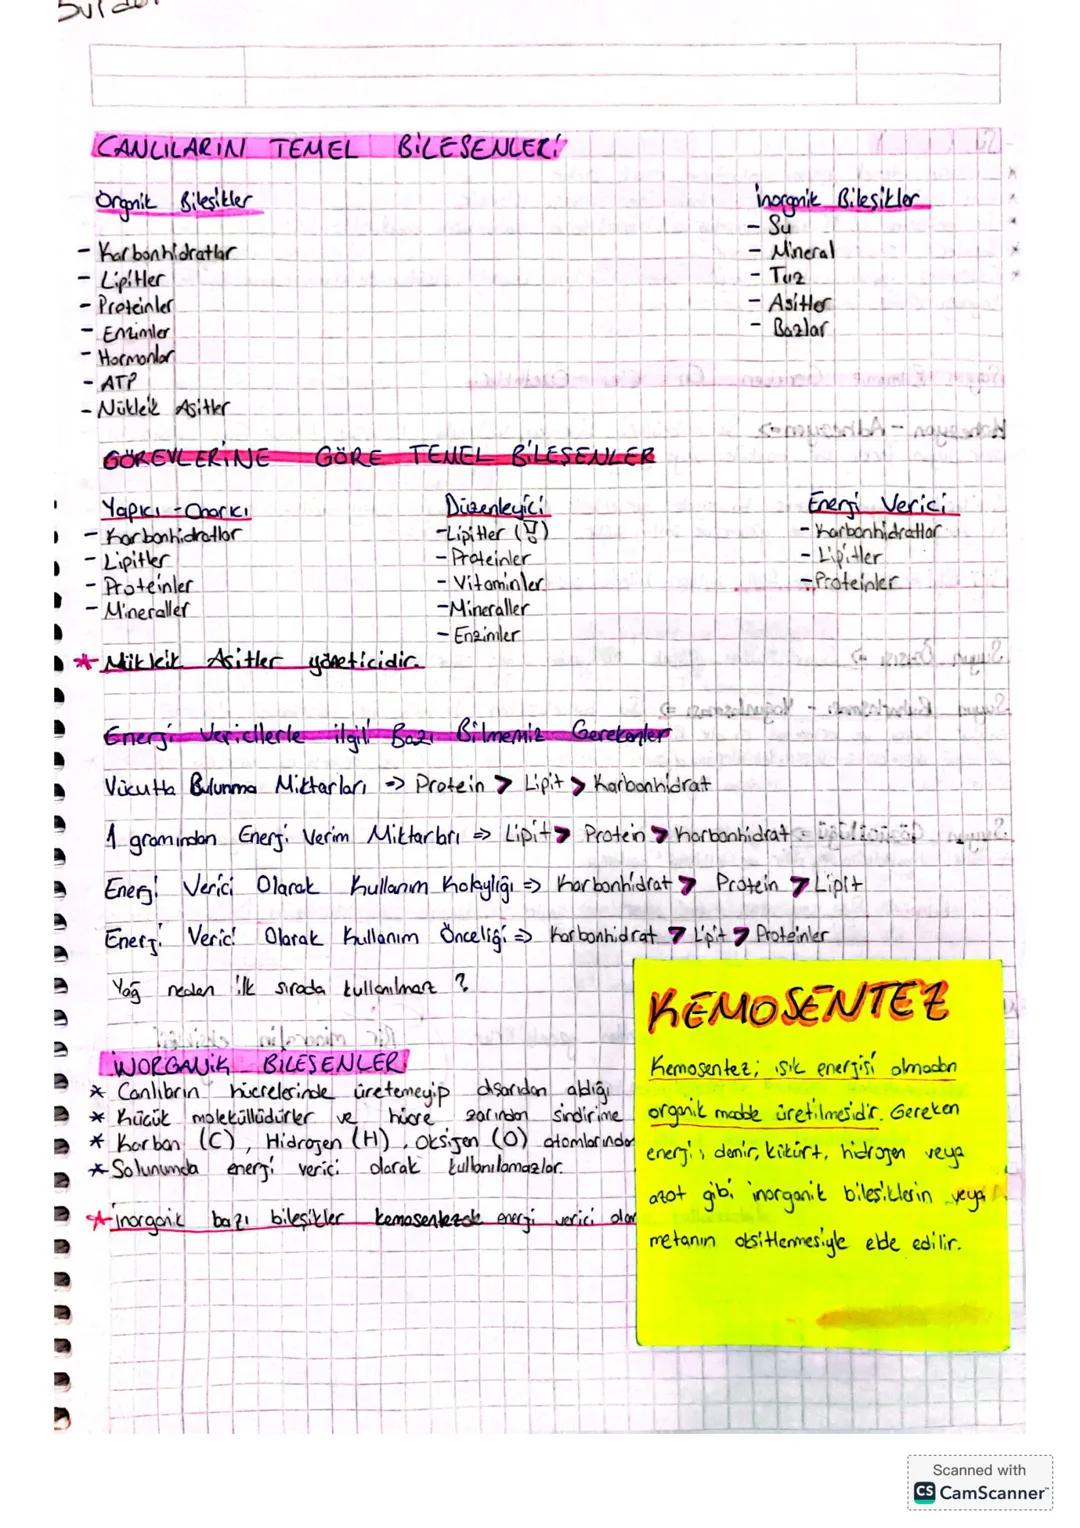 CANLILARIN TEMEL BİLEŞENLERİ
Organik Bileşikler
- Karbonhidratlar
- Lipitler
- Proteinler
- Enzimler
- Hormonlar
- ATP
- Nükleik Asitler
İnorganik Bileşikler
- Su
- Mineral
- Tuz
- Asitler
- Bazlar
GÖREVLERİNE GÖRE TEMEL BİLEŞENLER
Yapıcı - Onarıcı
- Karbonhidratlar
- Lipitler
- Proteinler
- Mineraller
Düzenleyici
- Lipitler (!)
- Proteinler
- Vitaminler
- Mineraller
- Enzimler
Enerji Verici
- Karbonhidratlar
- Lipitler
- Proteinler
* Nükleik Asitler yöneticidir.
Enerji Vericilerle ilgili Bazı Bilmemiz Gerekenler
Vücutta Bulunma Miktarları => Protein > Lipit > Karbonhidrat
1 gramından Enerji Verim Miktarları => Lipit > Protein > Karbonhidrat
Enerji Verici Olarak Kullanım Kolaylığı => Karbonhidrat > Protein > Lipit
Enerji Verici Olarak Kullanım Önceliği => Karbonhidrat > Lipit > Proteinler
Yağ neden ilk sırada kullanılmaz ?
İNORGANİK BİLEŞENLER
* Canlıların hücrelerinde üretemeyip dışarıdan aldığı
* Küçük moleküllüdürler ve hücre zarından sindirime
* Karbon (C), Hidrojen (H), Oksijen (O) atomlarından
* Solunumda enerji verici olarak kullanılamazlar.
* İnorganik bazı bileşikler kemosentezde enerji verici olar
KEMOSENTEZ
Kemosentez; ışık enerjisi olmadan
organik madde üretilmesidir. Gereken
enerji; demir, kükürt, hidrojen veya
azot gibi inorganik bileşiklerin veya
metanın oksitlenmesiyle elde edilir.
Scanned with
CS CamScanner